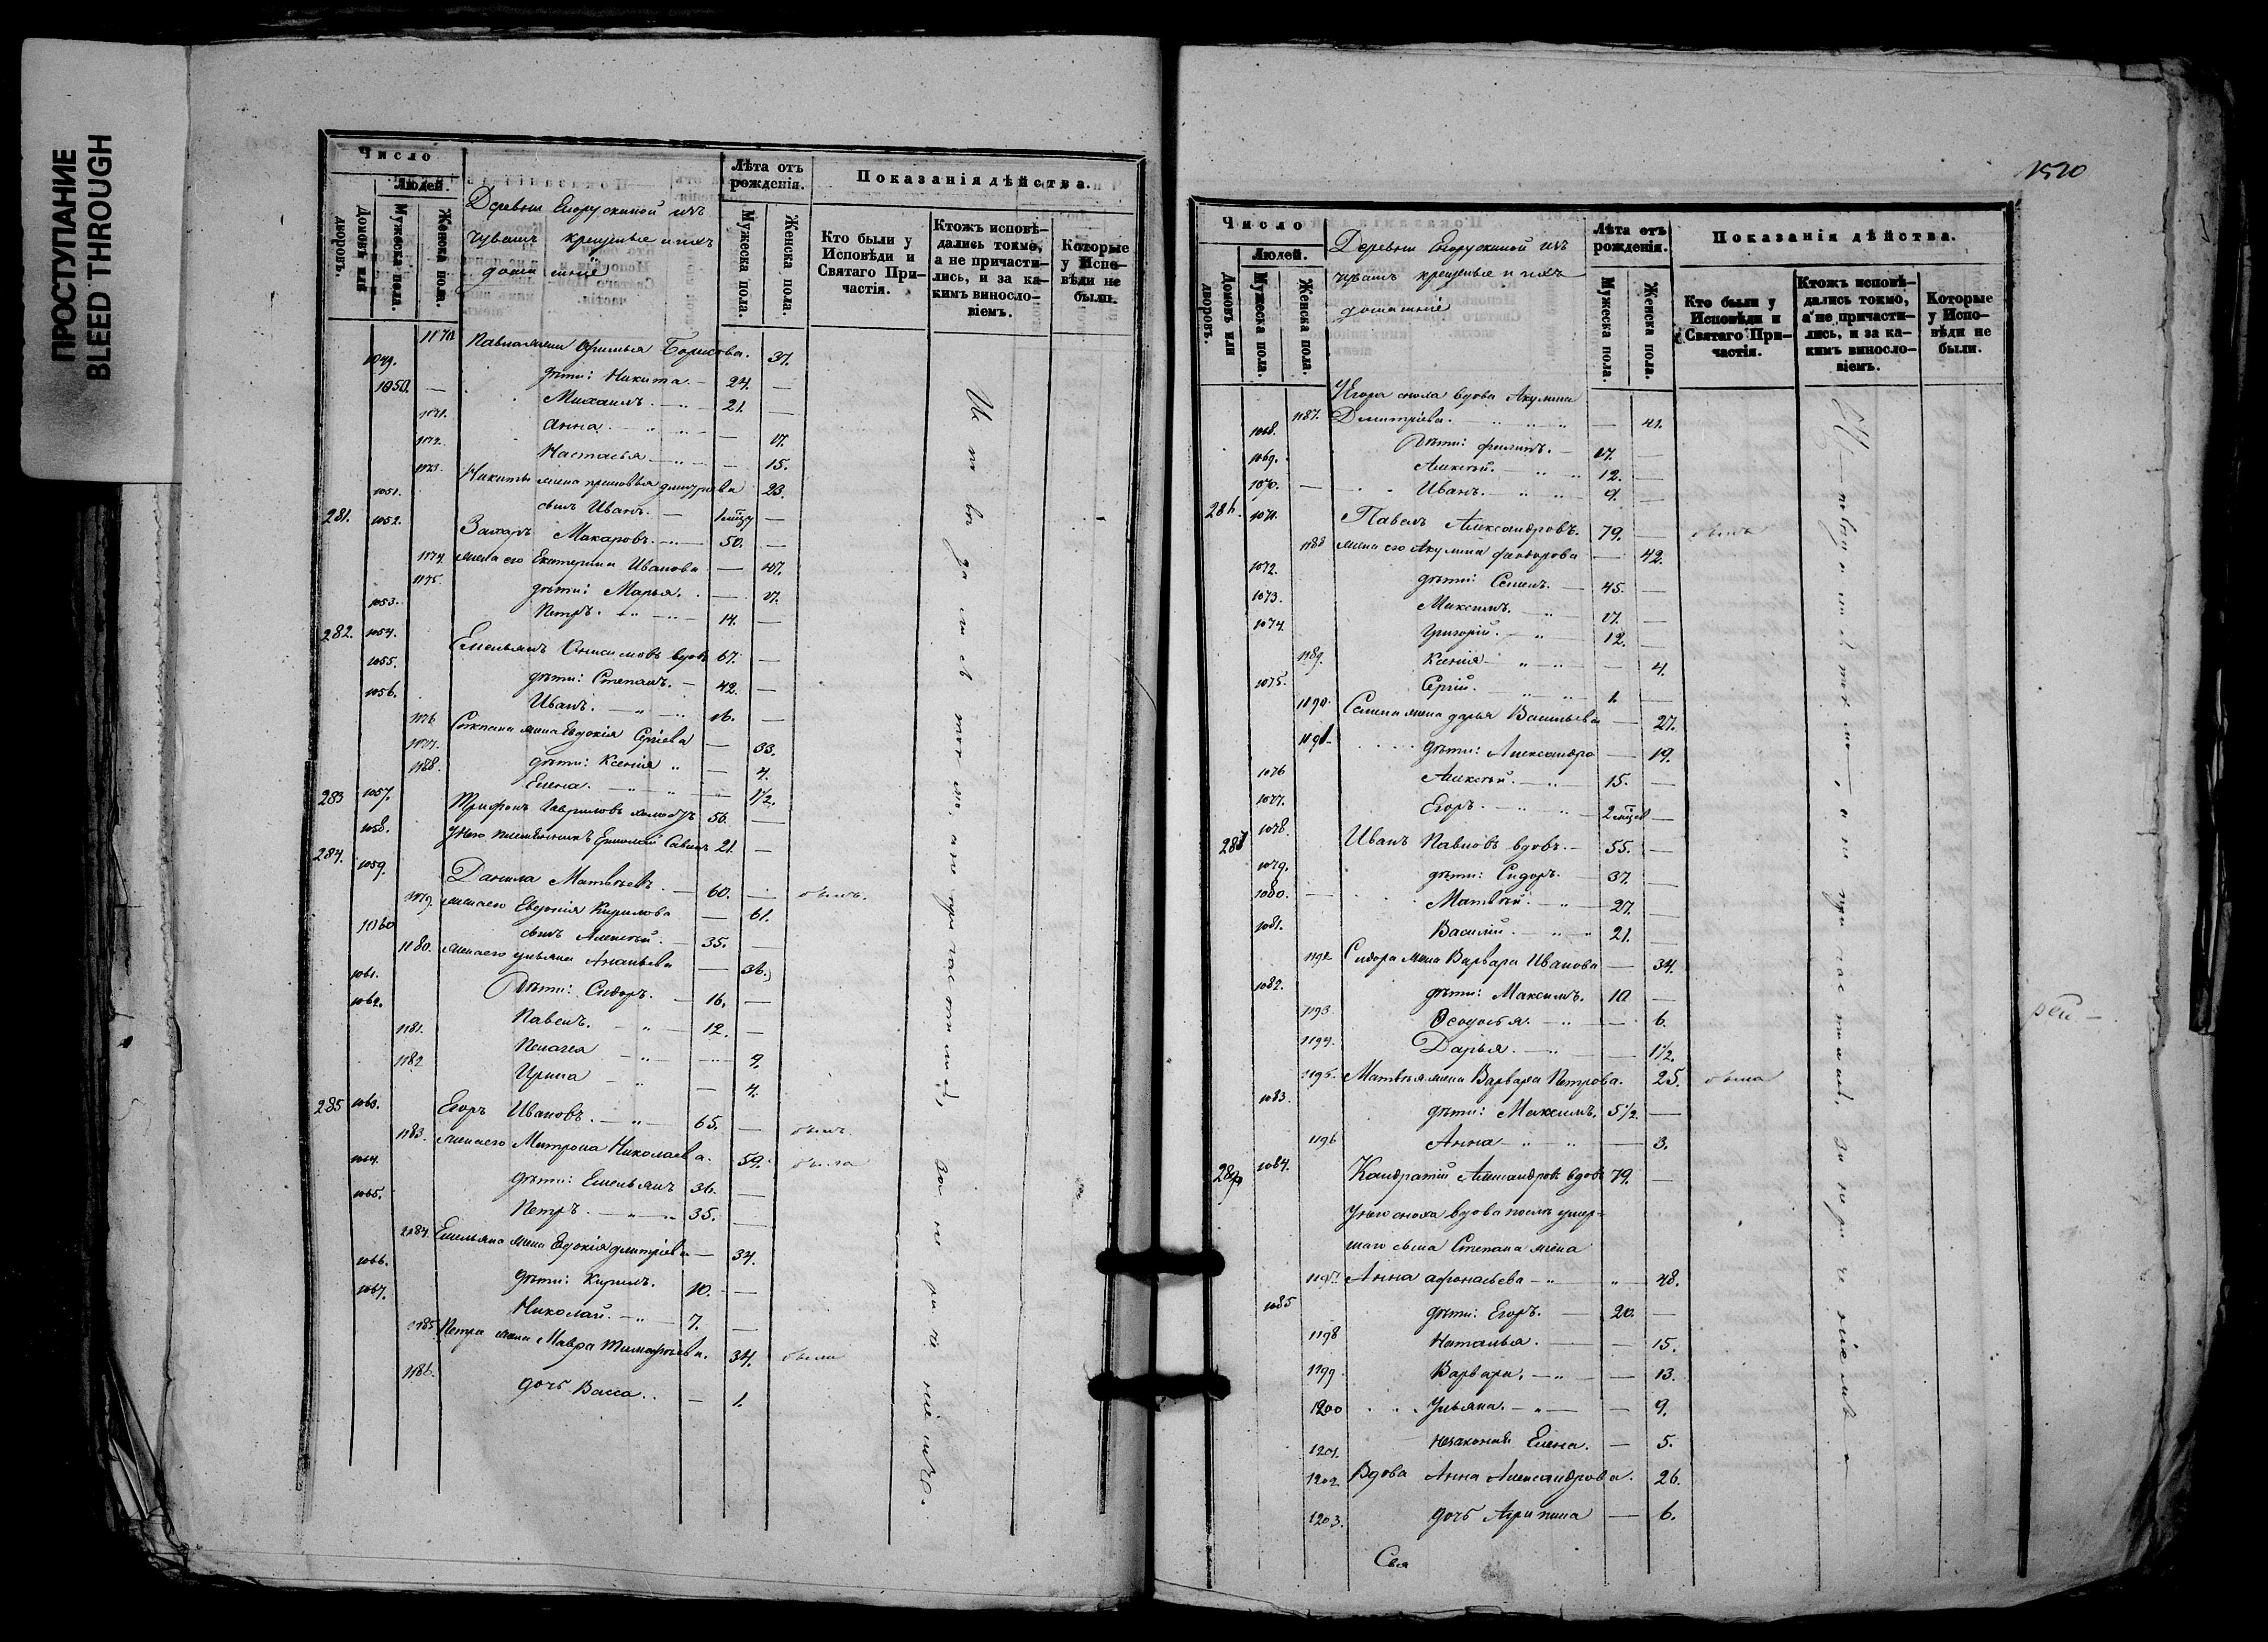 ПРОСТУПАНИЕ
BLEED THROUGH
Число
Людей.
Домовъ или дворовъ.
Мужеска пола.
Женска пола.
Деревни Егоружиной изъ
чувашъ крещеные и ихъ
домашніе
Лѣта отъ рожденія.
Мужеска пола.
Женска пола.
Показанія дѣйства.
Кто были у Исповѣди и Святаго Причастія.
Ктожъ исповѣдались токмо, а не причастились, и за какимъ винословіемъ.
Которые у Исповѣди не были.
1170 Павла жена Офимья Борисова. 37.
1049. дѣти: Никита. — 24. —
1050. — Михаилъ. — 21. —
1171. Анна. — — 17.
1172. Настасья — — 15.
1173. Никиты жена Дмитріева 23.
1051. сынъ Иванъ. —
281. 1052. Захаръ Макаровъ. — 50. —
1174. жена его Екатерина Иванова — 47.
1175. дѣти: Марья. — 17.
1053. Петръ. — 14. —
282. 1054. Емельянъ Онисимовъ вдовъ 67. —
1055. дѣти: Степанъ. — 42. —
1056. Иванъ. — 16. —
1176 Степана жена Евдокія Сергіева — 33.
1177. дѣти: Ксенія — 4.
1188. Елена. — 1½.
283 1057. Трифонъ Гавриловъ 56. —
1058. У него племянникъ Савинъ 21. —
284. 1059. Данила Матвѣевъ. — 60. — былъ.
1179. жена его Евдокія Кирилова — 61.
1060 сынъ Алексѣй. — 35. —
1180. жена его Ульяна Ананьева — 36.
1061. Дѣти: Сидоръ. — 16. —
1062. Павелъ. — 12. —
1181. Пелагея — 9.
1182 Ирина — 4.
285 1063. Егоръ Ивановъ. — 65. — былъ.
1183. жена его Митрона Николаева. 59. была
1064. дѣти: Емельянъ 36. —
1065. Петръ. — 35. —
1184. Емельяна жена Евдокія Дмитріева — 34.
1066. дѣти: Кирилъ. 10. —
1067. Николай. — 7. —
1185. Петра жена Мавра Тимофѣева. 34. была
1186. дочь Васса. — 1.
Исповѣдались токмо, а не причастились, за нераченіемъ.
1520
Число
Людей.
Домовъ или дворовъ.
Мужеска пола.
Женска пола.
Деревни Егоружиной изъ
чувашъ крещеные и ихъ
домашніе
Лѣта отъ рожденія.
Мужеска пола.
Женска пола.
Показанія дѣйства.
Кто были у Исповѣди и Святаго Причастія.
Ктожъ исповѣдались токмо, а не причастились, и за какимъ винословіемъ.
Которые у Исповѣди не были.
У Егора сноха вдова Акулина
1187. Дмитріева. — — 41.
1068. Дѣти: Филипъ. — 17. —
1069. Алексѣй. — 12. —
1070. — Иванъ. — 9. —
286. 1071. Павелъ Александровъ. 79. — былъ
1188 жена его Акулина Федорова — 42.
1072. дѣти: Семенъ. — 45. —
1073. Максимъ. — 17. —
1074. Григорій. — 12. —
1189. Ксенія — — 4.
1075. Сергій. — 1 —
1190. Семена жена Дарья Васильева — 27.
1191. дѣти: Александра — 19.
1076 Алексѣй. — 15. —
1077. Егоръ. —
287 1078. Иванъ Павловъ вдовъ. — 55. —
1079. дѣти: Сидоръ. — 37. —
1080. — Матвѣй. — 27. —
1081. Василій. — 21. —
1192 Сидора жена Варвара Иванова — 34.
1082. дѣти: Максимъ. 10 —
1193. Ѳеодосья. — — 6.
1194. Дарья. — — 1½.
1195. Матвѣя жена Варвара Петрова. 25. была
1083. дѣти: Максимъ. 5½. —
1196 Анна — — 3.
288 1084. Кандратій Александровъ вдовъ 79. —
У него сноха вдова послѣ умер-
шаго сына Степана жена
1197. Анна Афонасьева — 48.
1085 дѣти: Егоръ. — 20. —
1198 Наталья. — — 15.
1199. Варвара. — — 13.
1200 Ульяна. — — 9.
1201. незаконная Елена. — 5.
1202 Вдова Анна Александрова. 26.
1203. дочь Агрипина — 6.
Исповѣдались токмо, а не причастились за нераченіемъ
Свя